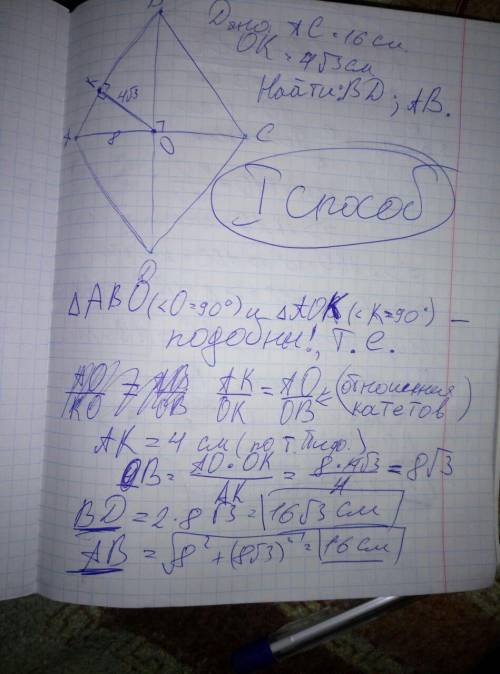 Дано, AC = 16 см
OK = 4√3 см
Найти: BD; AB.
B
K
4√3
A
8
O
C
D
I способ
△ABO (<O=90°) и △AOK (<K=90°) –
подобны!, т.е.
AO/KO = AB/OB AK/OK = AO/OB (отношения катетов)
AK = 4 см (по т. Пиф.)
OB = AO·OK/AK = 8·4√3/4 = 8√3
BD = 2·8√3 = 16√3 см
AB = √8²+(8√3)² = 16 см